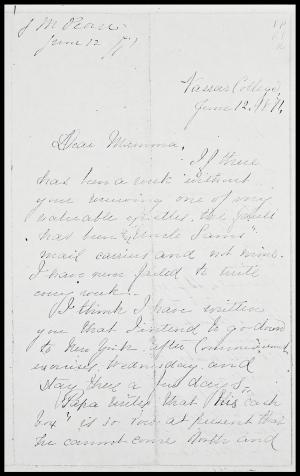 J M Pease
June 12 /71
Vassar College,
June 12, 1871,
Dear Mamma,
If there
has been a week without
your receiving one of my
valuable epistles, the fault
has been "Uncle Sam's"
mail carriers and not mine.
I have never failed to write
every week.
I think I have written
you that I intend to go down
to New York after Commencement
exercises, Wednesday, and
stay there a few days.
Papa writes that his "cash
box" is so low at present that
he cannot come North and